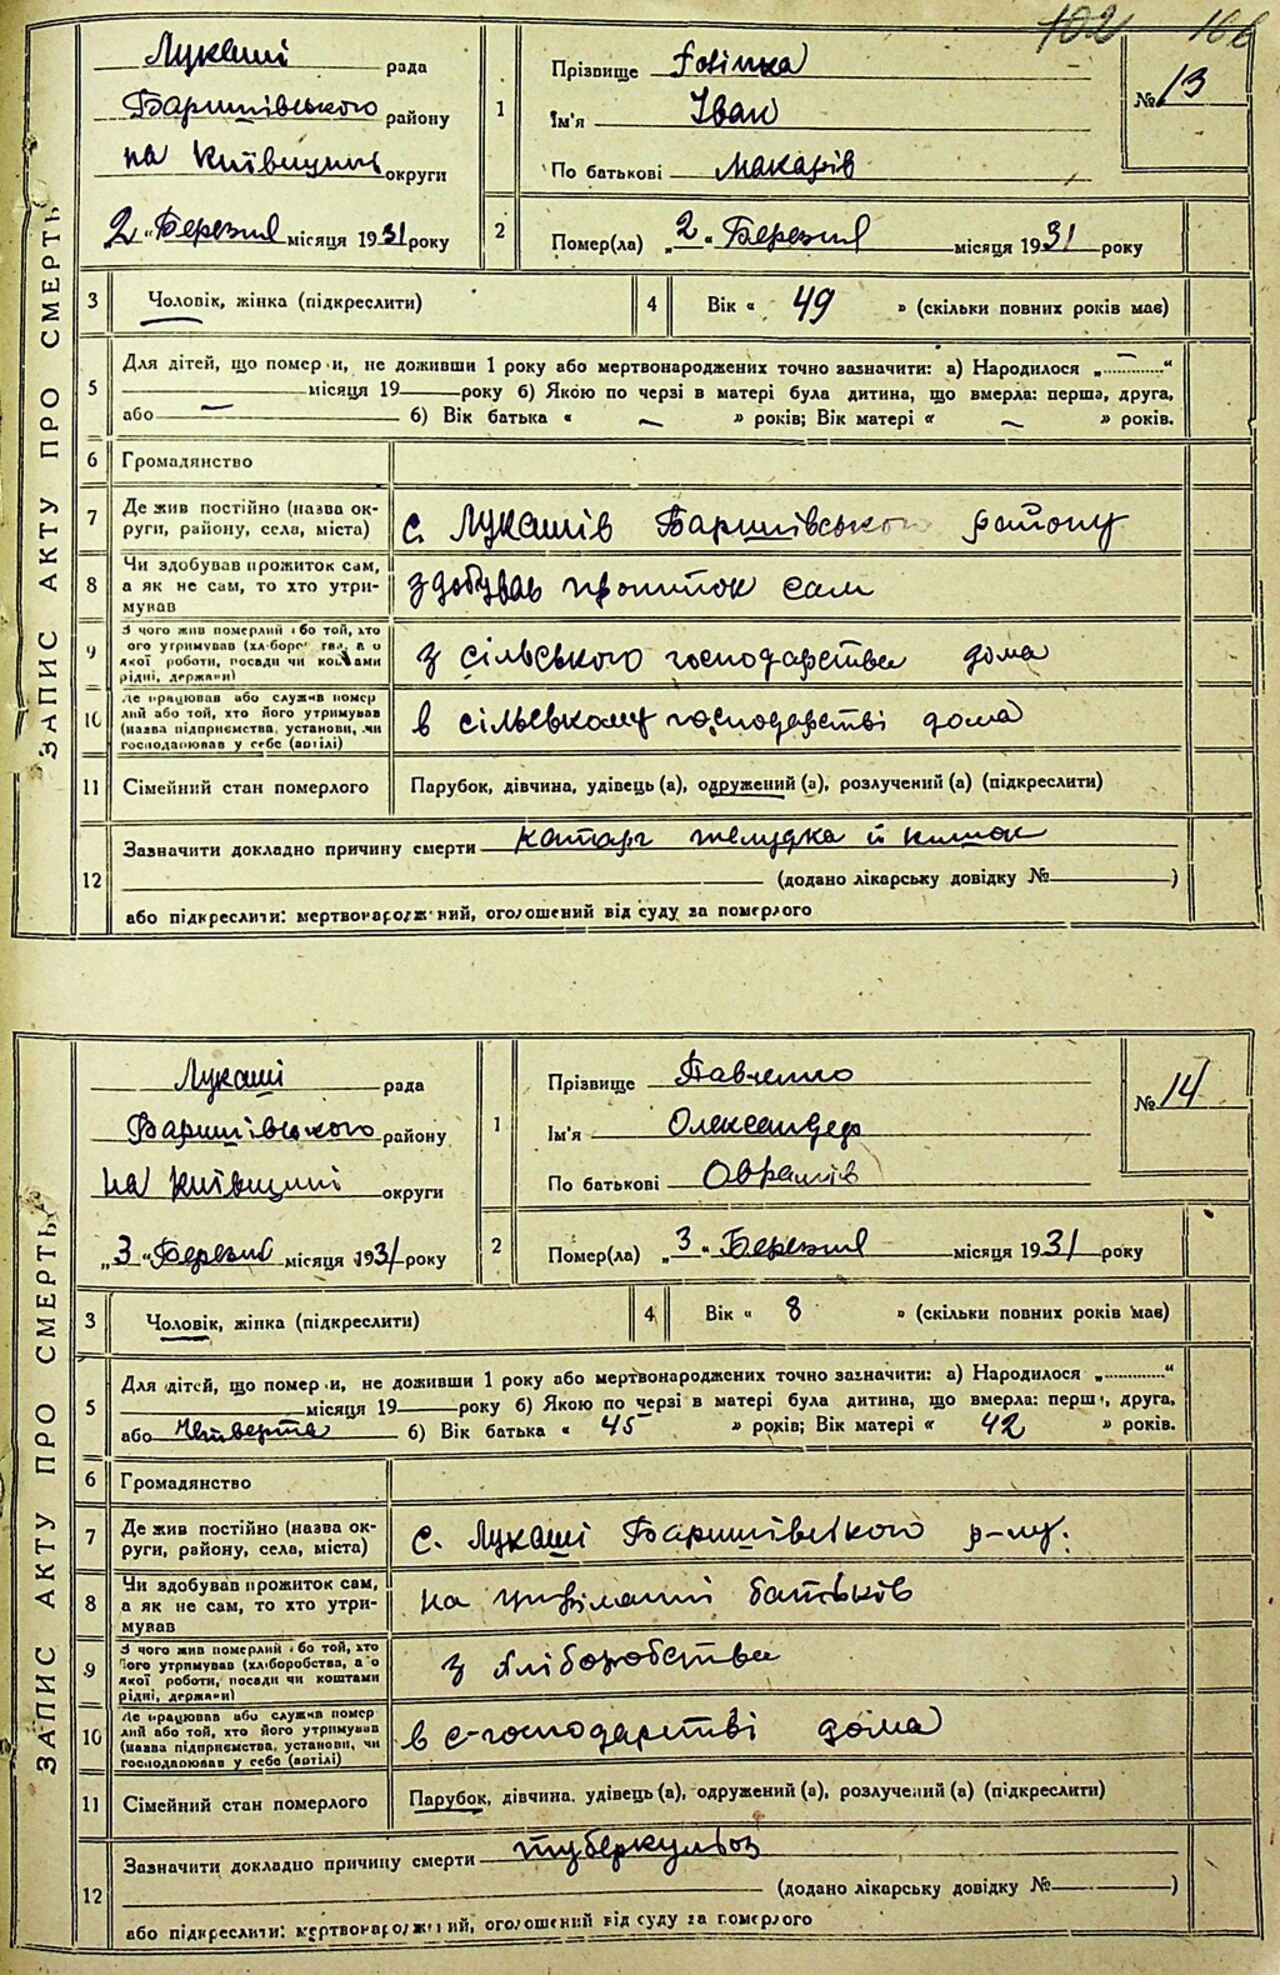 102 106
Лукаші рада
Баришівського району
на Київщині округи
2 „ Березня місяця 1931 року
1
Прізвище
Ім'я Іван
По батькові Макарів
№ 13
2
Помер(ла) „ 2 “ Березня місяця 1931 року
ЗАПИС АКТУ ПРО СМЕРТЬ
3 Чоловік, жінка (підкреслити)
4 Вік « 49 » (скільки повних років має)
5
Для дітей, що помер и, не доживши 1 року або мертвонароджених точно зазначити: а) Народилося „............“
місяця 19 року б) Якою по черзі в матері була дитина, що вмерла: перша, друга,
або — б) Вік батька « — » років; Вік матері « — » років.
6 Громадянство
7 Де жив постійно (назва ок-
руги, району, села, міста)
с. Лукашів Баришівського району
8 Чи здобував прожиток сам,
а як не сам, то хто утри-
мував
здобував прожиток сам
9 З чого жив померлий або той, хто
його утримував (хліборобства, а о
якої роботи, посади чи коштами
рідні, держави)
з сільського господарства дома
10 Де працював або служив помер
лий або той, хто його утримував
(назва підприємства, установи, чи
господарював у себе (артілі)
в сільському господарстві дома
11 Сімейний стан померлого
Парубок, дівчина, удівець (а), одружений (а), розлучений (а) (підкреслити)
12
Зазначити докладно причину смерти катарг желудка й кишок
(додано лікарську довідку № )
або підкреслити: мертвонароджений, оголошений від суду за померлого
Лукаші рада
Баришівського району
на Київщині округи
„ 3 “ Березня місяця 1931 року
1
Прізвище Павченко
Ім'я Олександер
По батькові Оврамів
№ 14
2
Помер(ла) „ 3 “ Березня місяця 1931 року
ЗАПИС АКТУ ПРО СМЕРТЬ
3 Чоловік, жінка (підкреслити)
4 Вік « 8 » (скільки повних років має)
5
Для дітей, що помер и, не доживши 1 року або мертвонароджених точно зазначити: а) Народилося „............“
місяця 19 року б) Якою по черзі в матері була дитина, що вмерла: перш , друга,
або Четверта б) Вік батька « 45 » років; Вік матері « 42 » років.
6 Громадянство
7 Де жив постійно (назва ок-
руги, району, села, міста)
с. Лукаші Баришівського р-ну.
8 Чи здобував прожиток сам,
а як не сам, то хто утри-
мував
на утріманні батьків
9 З чого жив померлий або той, хто
його утримував (хліборобства, а о
якої роботи, посади чи коштами
рідні, держави)
з хліборобства
10 Де працював або служив помер
лий або той, хто його утримував
(назва підприємства, установи, чи
господарював у себе (артілі)
в с-господарстві дома
11 Сімейний стан померлого
Парубок, дівчина, удівець (а), одружений (а), розлучений (а) (підкреслити)
12
Зазначити докладно причину смерти туберкульоз
(додано лікарську довідку № )
або підкреслити: мертвонароджений, оголошений від суду за померлого